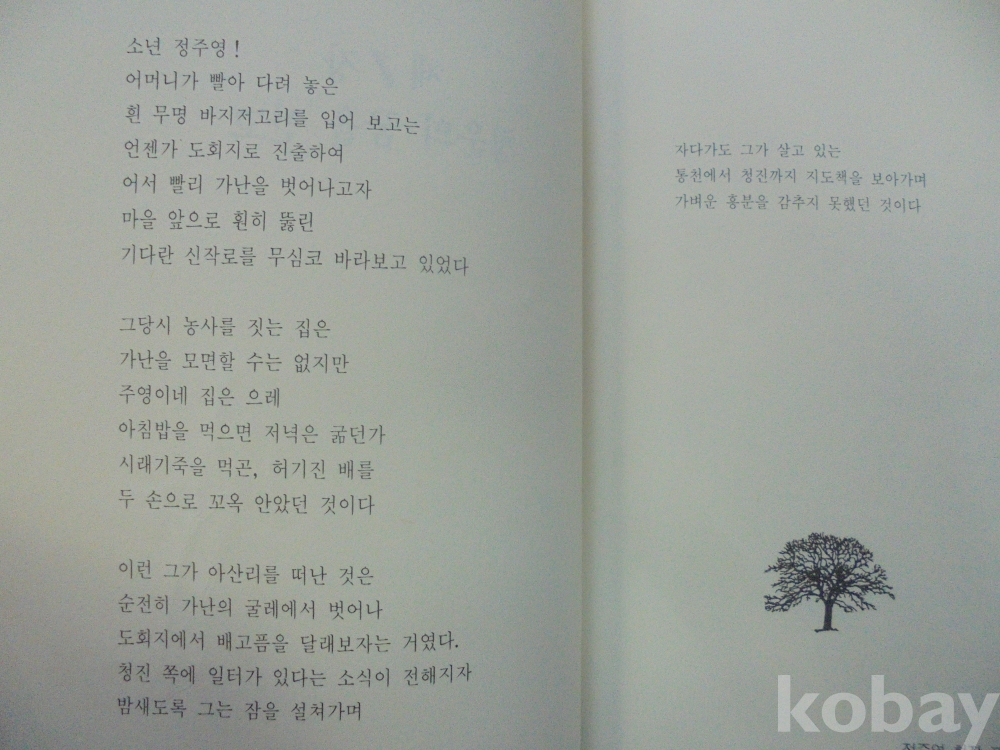 소년 정주영!
어머니가 빨아 다려 놓은
흰 무명 바지저고리를 입어 보고는
언젠가 도회지로 진출하여
어서 빨리 가난을 벗어나고자
마을 앞으로 훤히 뚫린
기다란 신작로를 무심코 바라보고 있었다
그당시 농사를 짓는 집은
가난을 모면할 수는 없지만
주영이네 집은 으레
아침밥을 먹으면 저녁은 굶던가
시래기죽을 먹곤, 허기진 배를
두 손으로 꼬옥 안았던 것이다
이런 그가 아산리를 떠난 것은
순전히 가난의 굴레에서 벗어나
도회지에서 배고픔을 달래보자는 거였다.
청진 쪽에 일터가 있다는 소식이 전해지자
밤새도록 그는 잠을 설쳐가며
자다가도 그가 살고 있는
통천에서 청진까지 지도책을 보아가며
가벼운 흥분을 감추지 못했던 것이다
kobay